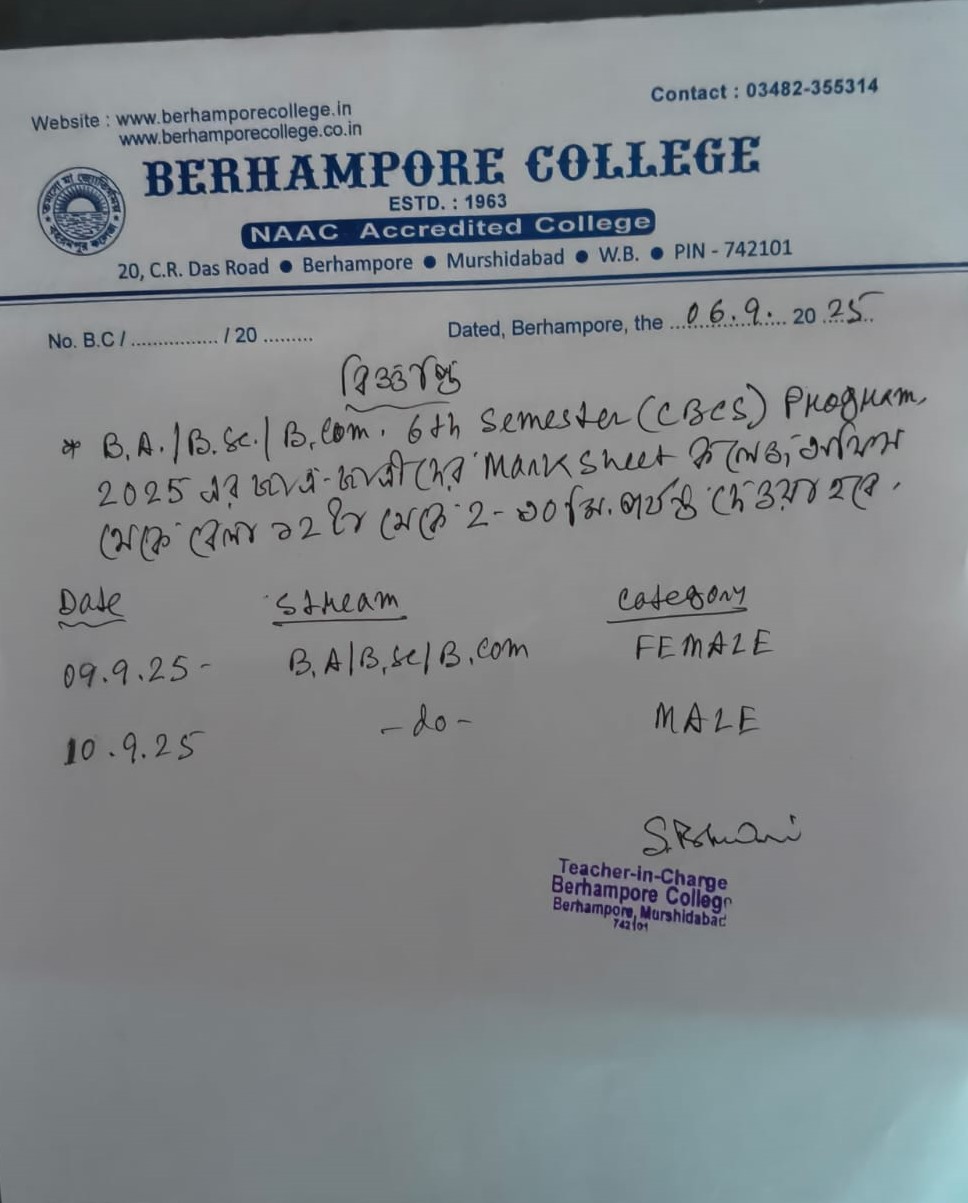 Website : www.berhamporecollege.in
www.berhamporecollege.co.in
Contact : 03482-355314
BERHAMPORE COLLEGE
ESTD. : 1963
NAAC Accredited College
20, C.R. Das Road ● Berhampore ● Murshidabad ● W.B. ● PIN - 742101
No. B.C / ................ / 20 .........
Dated, Berhampore, the 06.9. 20 25
বিজ্ঞপ্তি
* B.A./B.Sc./B.Com. 6th Semester (CBCS) Program,
2025 এর ছাত্র-ছাত্রীদের Mark Sheet কলেজ অফিস
থেকে বেলা ১২ টা থেকে ২-৩০ মি. পর্যন্ত দেওয়া হবে.
Date Stream Category
09.9.25 - B.A/B.Sc/B.Com FEMALE
10.9.25 - do - MALE
Teacher-in-Charge
Berhampore College
Berhampore, Murshidabad
742101